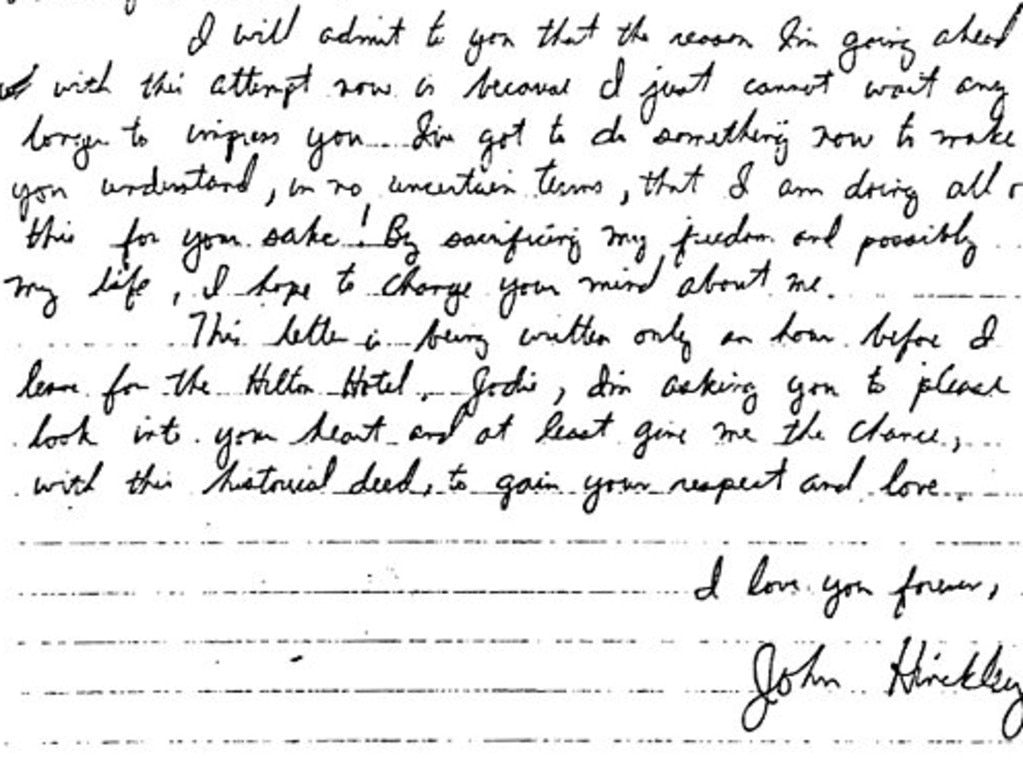 I will admit to you that the reason I'm going ahead
with this attempt now is because I just cannot wait any
longer to impress you. I've got to do something now to make
you understand, in no uncertain terms, that I am doing all
this for your sake! By sacrificing my freedom and possibly
my life, I hope to change your mind about me.
This letter is being written only an hour before I
leave for the Hilton Hotel. Jodie, I'm asking you to please
look into your heart and at least give me the chance,
with this historical deed, to gain your respect and love.
I love you forever,
John Hinckley